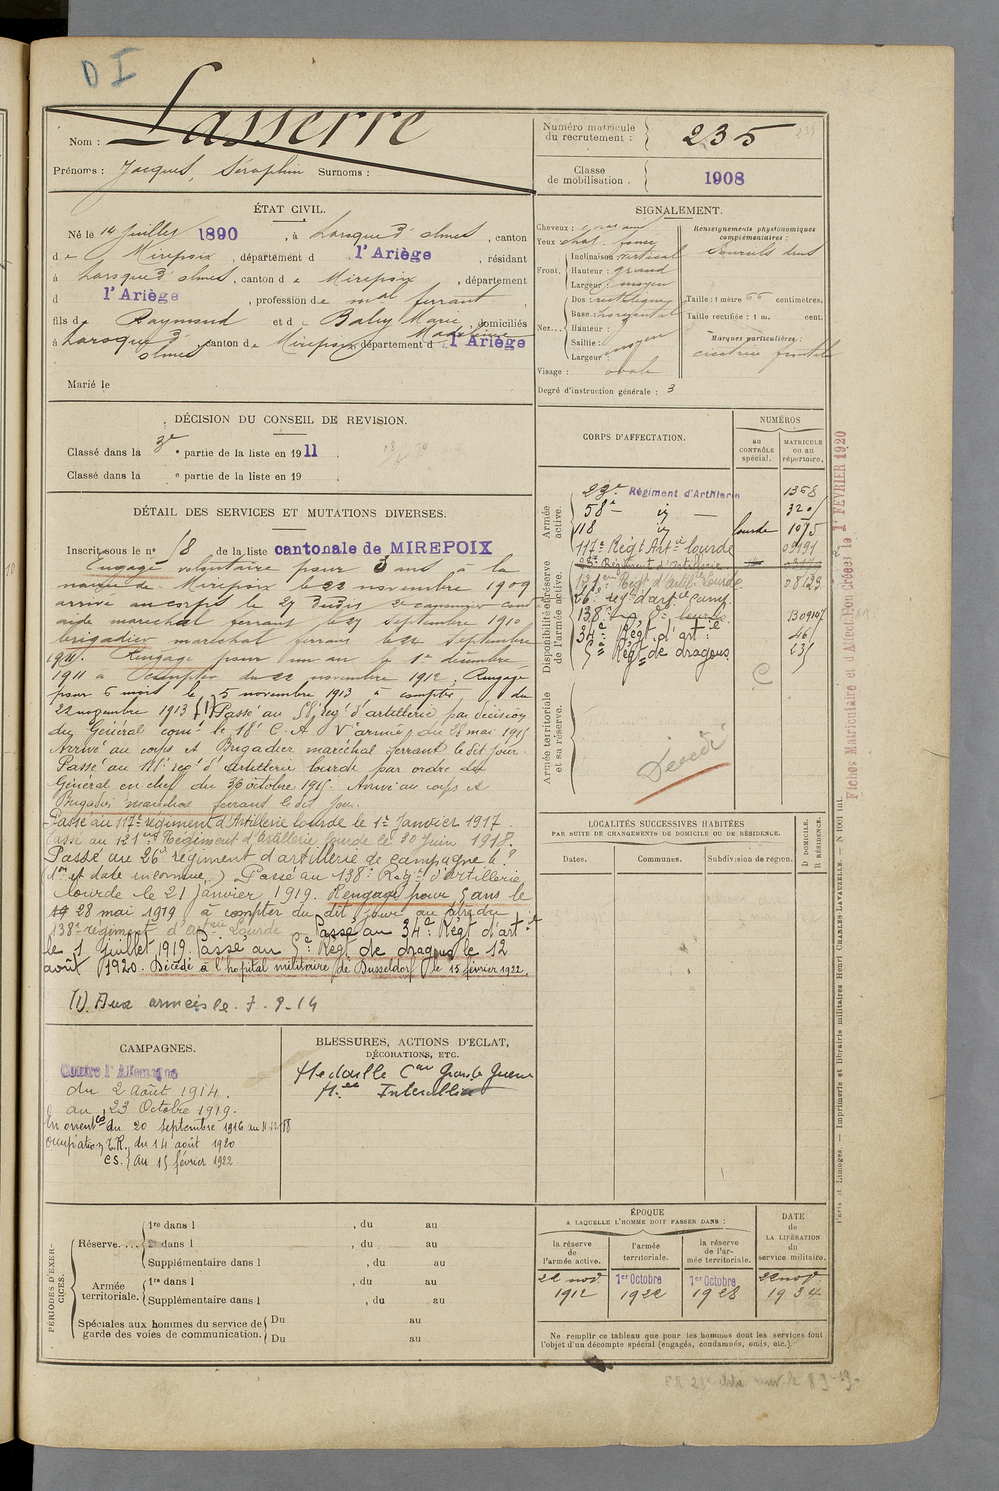 D I
Nom : Lasserre
Prénoms : Jacques, Séraphin Surnoms :
Numéro matricule
du recrutement : 235
235
Classe
de mobilisation . 1908
ÉTAT CIVIL.
Né le 14 juillet 1890 , à Laroque d'olmes , canton
d e Mirepoix , département d l'Ariège , résidant
à Laroque d'olmes , canton d e Mirepoix , département
d l'Ariège , profession de mal ferrant ,
fils de Raymond et de Baby Marie Madeleine , domiciliés
à Laroque d'olmes , canton de Mirepoix , département d l'Ariège
Marié le
SIGNALEMENT.
Cheveux :
Yeux chat. foncé
Front. Inclinaison vertical
Hauteur : grand
Largeur : moyen
Nez... Dos : rectiligne
Base : horizontal
Hauteur :
Saillie : moyen
Largeur :
Visage : ovale
Degré d'instruction générale : 3
Renseignements physionomiques
complémentaires :
Sourcils drus
Taille : 1 mètre 66 centimètres.
Taille rectifiée : 1 m. cent.
Marques particulières :
cicatrice frontale
DÉCISION DU CONSEIL DE REVISION.
Classé dans la 3e e partie de la liste en 1911 .
Classé dans la e partie de la liste en 19 .
DÉTAIL DES SERVICES ET MUTATIONS DIVERSES.
Inscrit sous le no 18 de la liste cantonale de MIREPOIX
Engagé volontaire pour 3 ans à la
mairie de Mirepoix le 22 novembre 1909
arrivé au corps le 27 dudit 2e canonnier cond
aide maréchal ferrant le 27 Septembre 1910
brigadier maréchal ferrant le 22 Septembre
1911. Rengagé pour un an le 1er décembre
1911 à compter du 22 novembre 1912. Rengagé
pour 6 mois le 5 novembre 1913 à compter du
22 novembre 1913 (1) Passé au 58e rég' d'artillerie par décision
du Général comt le 18e C. A Ve armée, du 28 mai 1915
Arrivé au corps et Brigadier maréchal ferrant le dit jour.
Passé au 118e rég' d'artillerie lourde par ordre du
Général en chef du 30 octobre 1915. Arrivé au corps et
Brigadier maréchal ferrant le dit jour.
Passé au 117e régiment d'Artillerie lourde le 1er Janvier 1917
Passé au 121eme Régiment d'Artillerie Lourde le 30 Juin 1918.
Passé au 26e régiment d'artillerie de campagne le ?
et date inconnue) Passé au 138e Regt d'artillerie
lourde le 21 Janvier 1919. Rengagé pour 5 ans le
28 mai 1919 à compter du dit jour au titre du
138e régiment d'artie Lourde Passé au 34e Régt d'artie
le 1 juillet 1919. Passé au 5e Régt de dragons le 12
août 1920. Décédé à l'hôpital militaire de Dusseldorf le 15 février 1922.
(1) Aux armées le 7-9-14
CORPS D'AFFECTATION.
NUMÉROS
au
CONTRÔLE
spécial.
MATRICULE
ou au
répertoire.
Armée
active.
23e Régiment d'Artillerie 1368
58e — 320
118 lourde 1075
Disponibilité et réserve
de l'armée active.
117e Régt Artie lourde 09191
121eme Regt d'Artie Lourde 08423
26e regt d'artie camp.
138e lourde 1309147
34e Régt. d'artie 46
5e Régt de dragons 235
C
Armée territoriale
et sa réserve.
Décédé
Fiches Matriculaire et d'Affectation créées le 1er FEVRIER 1920
LOCALITÉS SUCCESSIVES HABITÉES
PAR SUITE DE CHANGEMENTS DE DOMICILE OU DE RÉSIDENCE.
Dates.
Communes.
Subdivision de région.
D DOMICILE.
R RÉSIDENCE.
CAMPAGNES.
Contre l'Allemagne
du 2 Août 1914.
au 23 Octobre 1919.
En orient du 20 septembre 1916 au 11-11-18
Occupation T.R. du 14 août 1920
C S. au 15 février 1922.
BLESSURES, ACTIONS D'ÉCLAT,
DÉCORATIONS, ETC.
Médaille Cve Grande Guerre
Mlle Interalliée
PÉRIODES D'EXER-
CICES.
Réserve.... 1re dans l , du au
2e dans l , du au
Supplémentaire dans l , du au
Armée
territoriale. 1re dans l , du au
Supplémentaire dans l , du au
Spéciales aux hommes du service de
garde des voies de communication. Du au
Du au
ÉPOQUE
A LAQUELLE L'HOMME DOIT PASSER DANS :
la réserve
de
l'armée active.
l'armée
territoriale.
la réserve
de l'ar-
mée territoriale.
DATE
de
LA LIBÉRATION
du
service militaire.
22 nov. 1912
1er Octobre 1922
1er Octobre 1928
22 nov. 1934
Ne remplir ce tableau que pour les hommes dont les services font
l'objet d'un décompte spécial (engagés, condamnés, omis, etc.).
Paris et Limoges. — Imprimerie et librairie militaires Henri CHARLES-LAVAUZELLE. — N 1001 int.